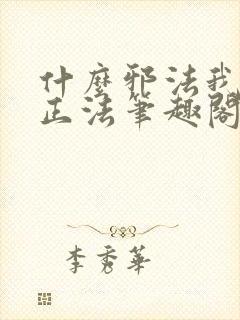 什麼邪法我
正法筆趣閣
李秀華